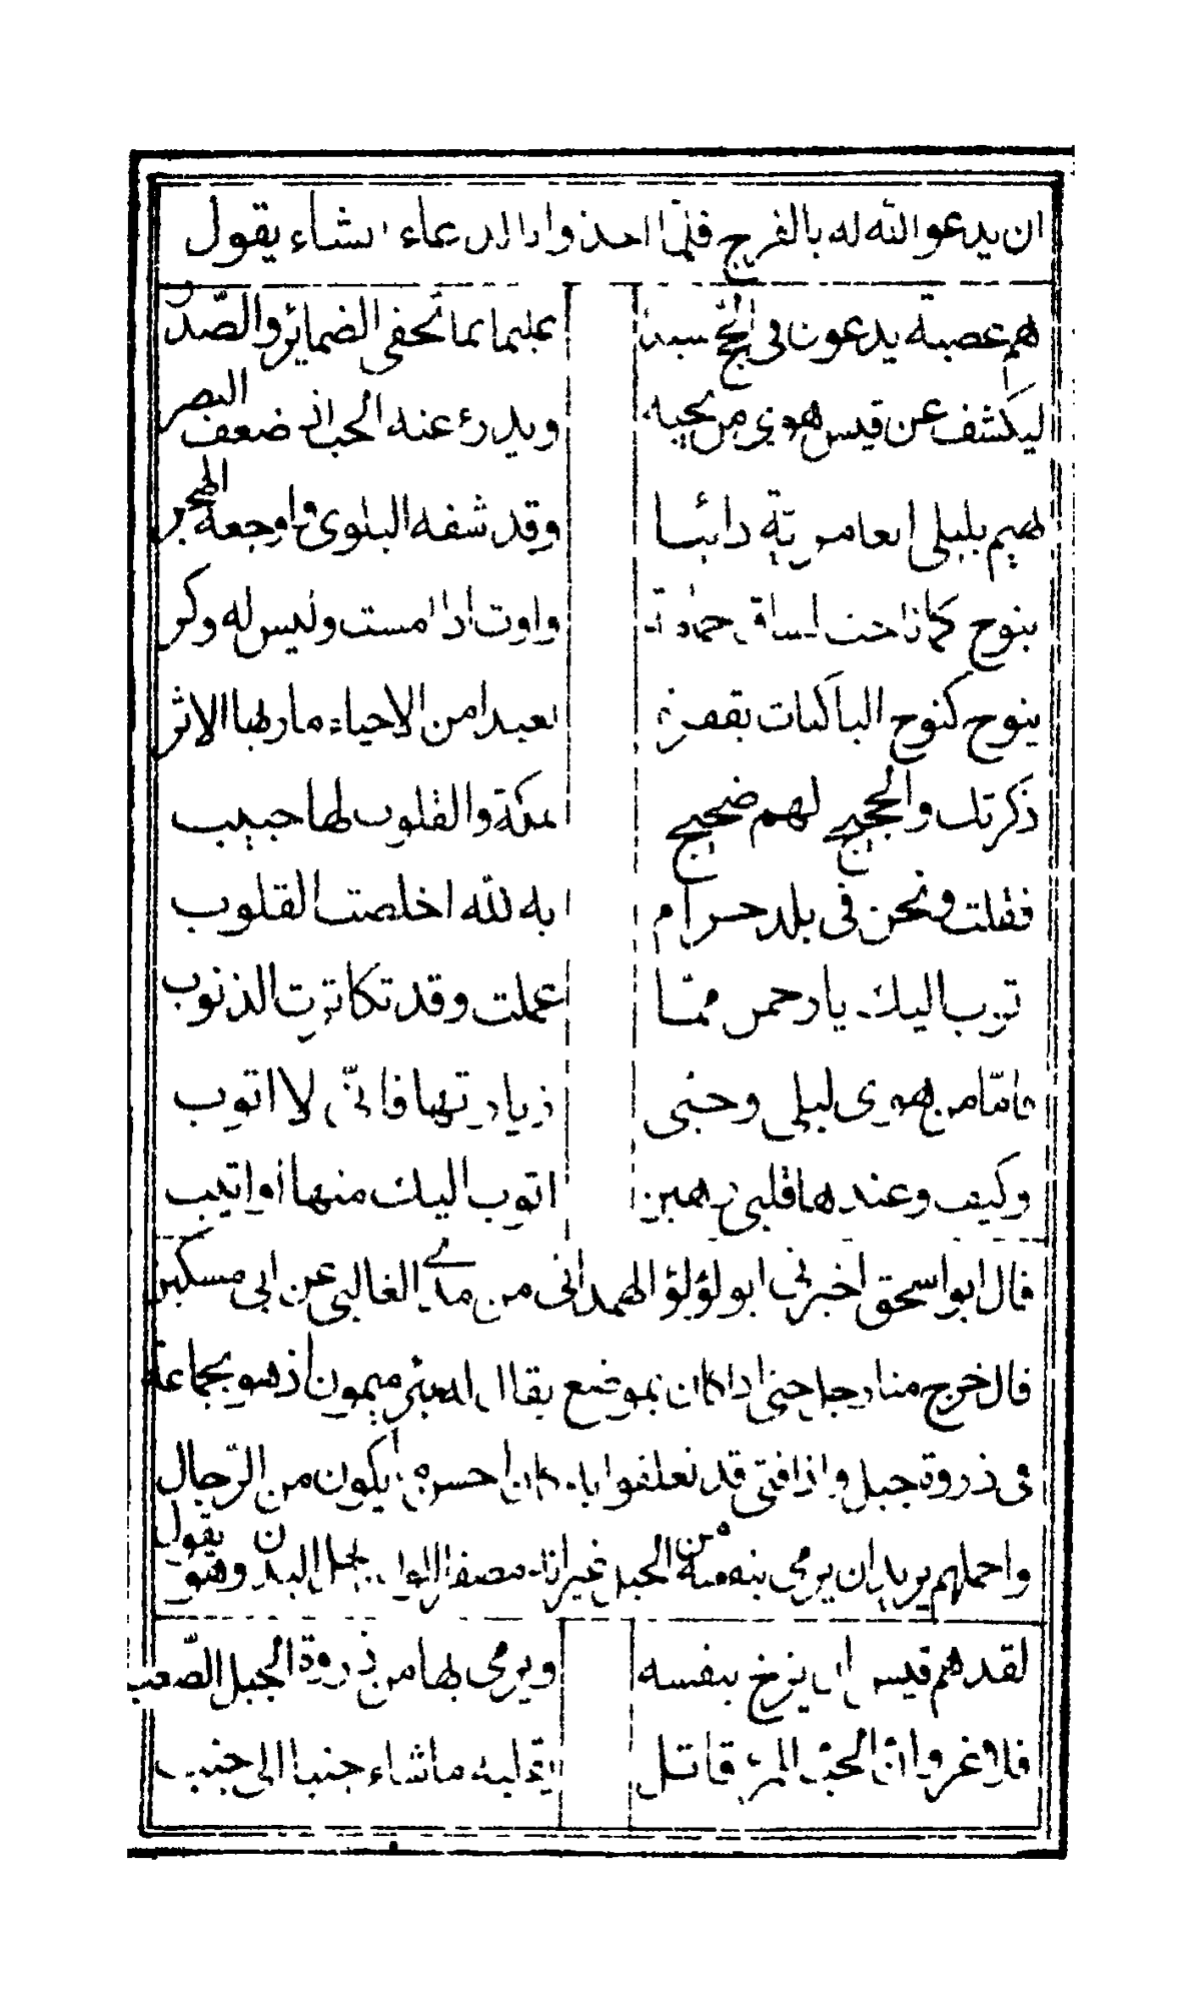 ان يدعو الله له بالفرج فلمّا اخذوا الدعاء انشاء يقول
هم عصبة يدعون فى الحج عليما بما تخفى الضمائر والصّدر
ليكشف عن قيس هوى من يحبه ويدرئ عنه الحب ضعف البصر
يهيم بليلى العامرية دائبا وقد شفه البلوى واوجعه الهجر
ينوح كما ناحت لساق حمامة واوت اذا امست وليس له وكر
ينوح كنوح الباكيات بقفرة بعيدا من الاحياء ما ربها الاثر
ذكرتك والحجيج لهم ضجيج بمكة والقلوب لها حبيب
فقلت ونحن فى بلد حرام به لله اخلصت القلوب
توب اليك يا رحمن ممّا عملت وقد تكاثرت الذنوب
فامّا من هوى ليلى وحبى زيارتها فانّى لا اتوب
وكيف وعندها قلبى رهين اتوب اليك منها او انيب
قال ابو اسحق اخبرنى ابو لؤلؤ الهمدانى من الغالبى عن ابى مسكين
قال خرج منا رجل حتى اذا كان بموضع يقال له بئر ميمون اذ هو بجماعة
فى ذروة جبل واذا فتى قد تعلقوا به كان احسن من ايكون من الرّجال
واجملهم يريد ان يرمى بنفسه من الجبل غير انه مصفر اللون نحل البدن وهو يقول
لقد هم قيس ان يزخ بنفسه ويرمى بها من ذروة الجبل الصّعب
فلا غرو ان الحب للمرء قاتل يقلبه ما شاء جنبا الى جنب